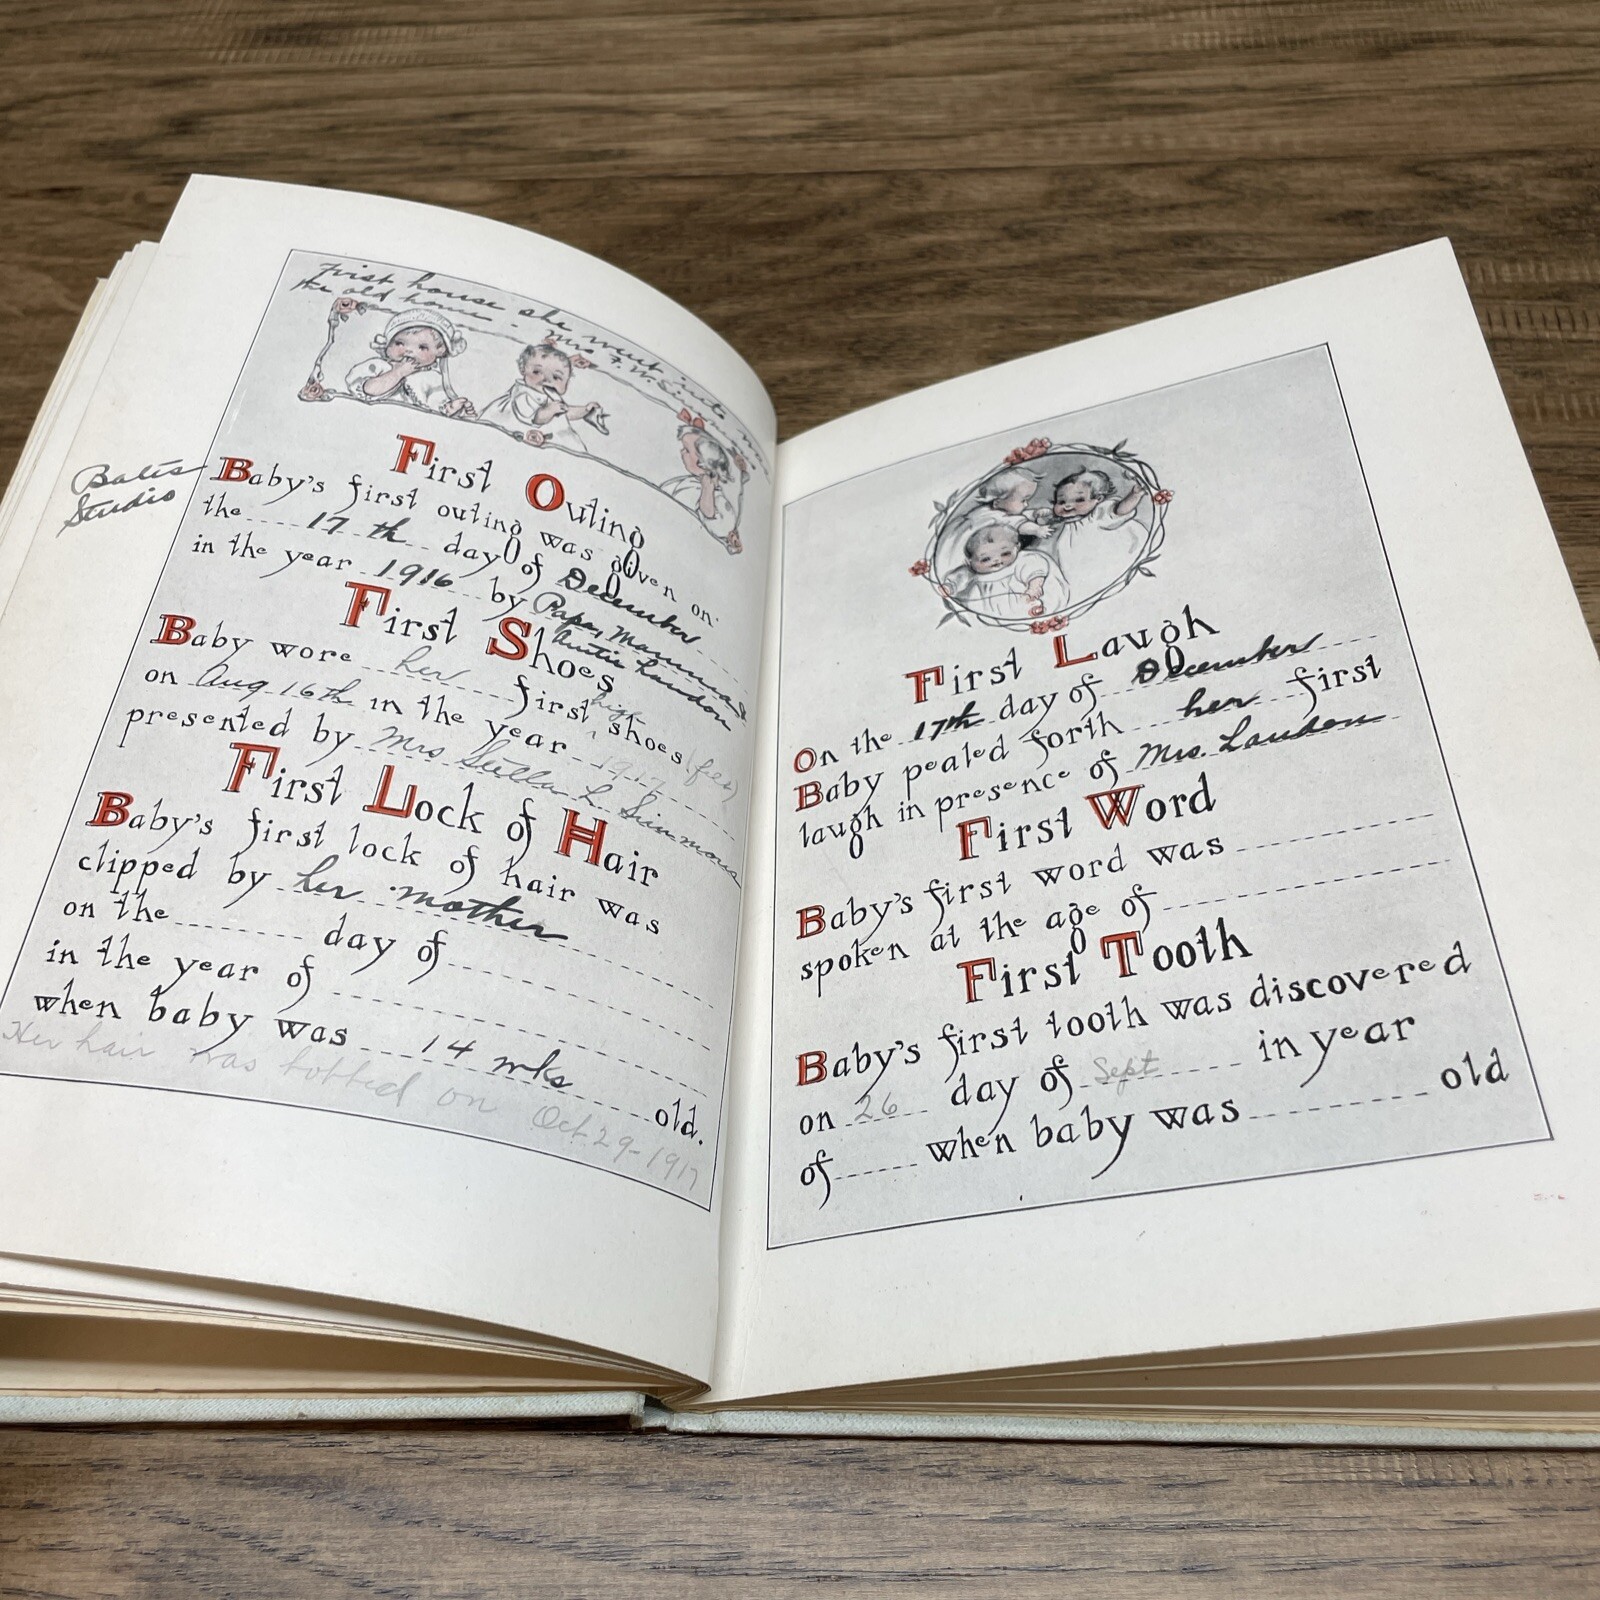 First house she went into was
the old home - Mrs F. W. S
Bates
Studio
First Outing
Baby's first outing was given on
the 17 th day of December
in the year 1916 by Papa, Mamma &
Auntie Landon
First Shoes
Baby wore her first high shoes
on Aug 16th in the year 1917
presented by Mrs Stella L. Simmons
First Lock of Hair
Baby's first lock of hair was
clipped by her mother
on the day of
in the year of
when baby was 14 mks old.
Her hair was bobbed on Oct 29-1917
First Laugh
On the 17th day of December
Baby pealed forth her first
laugh in presence of Mrs. Landon
First Word
Baby's first word was
spoken at the age of
First Tooth
Baby's first tooth was discovered
on 26 day of Sept in year
of when baby was old